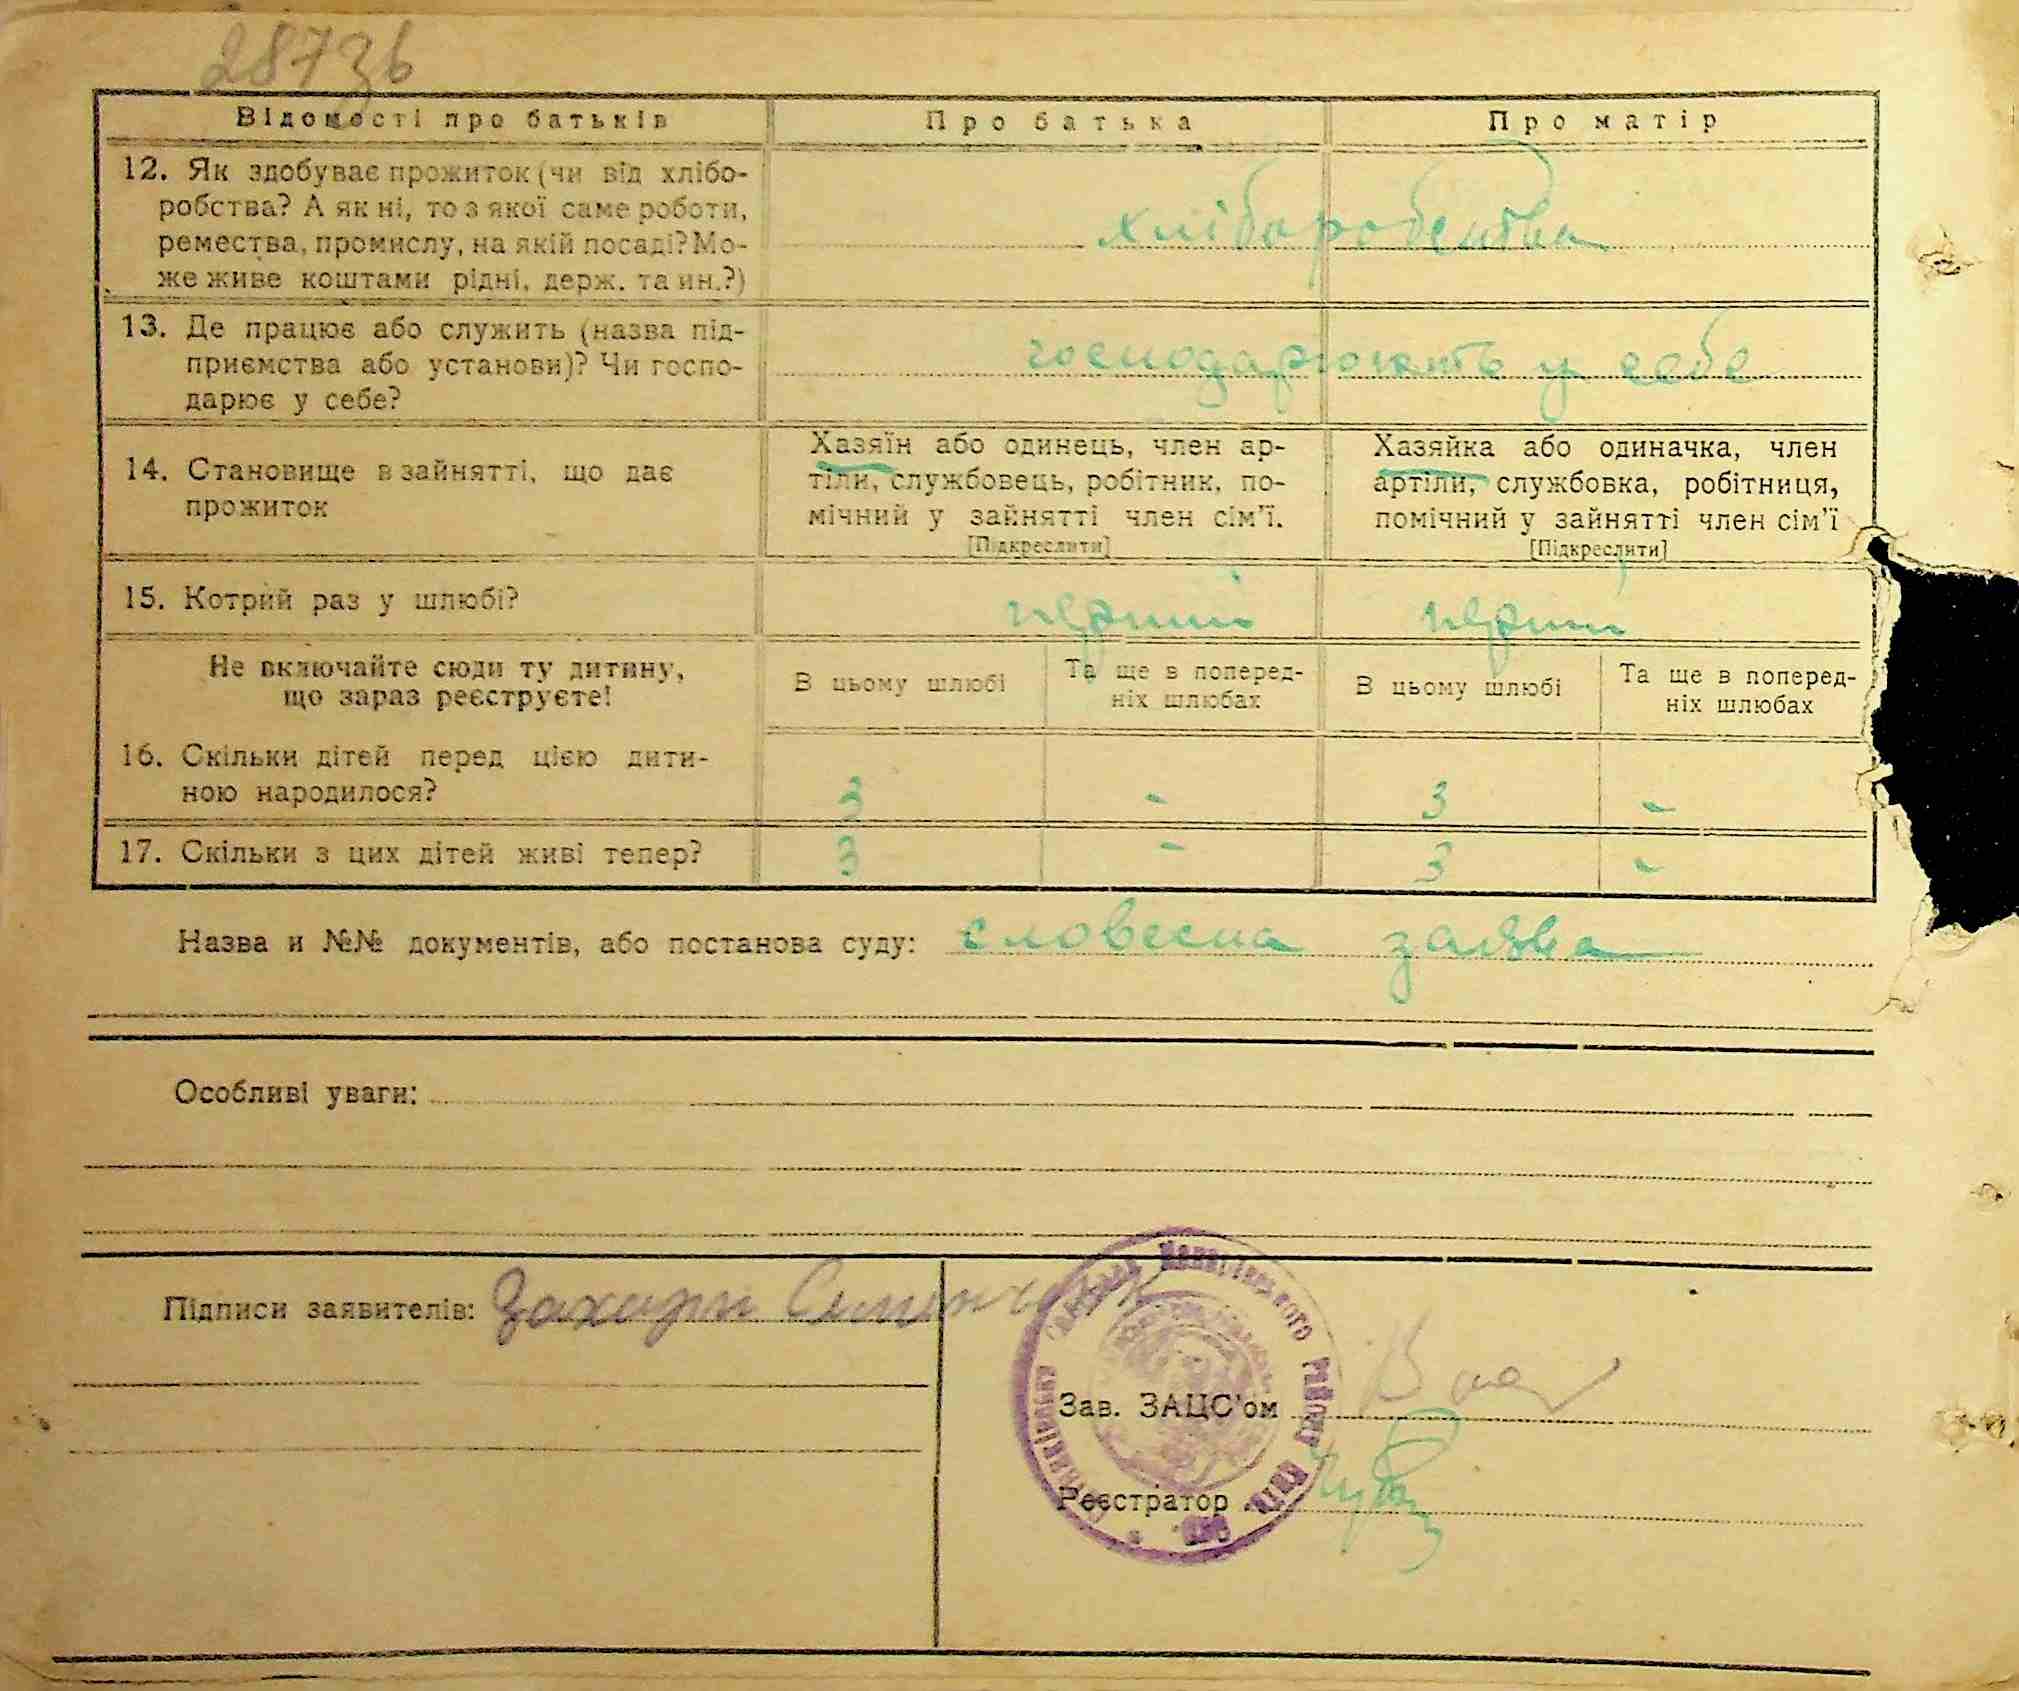 287зв
Відомості про батьків Про батька Про матір
12. Як здобуває прожиток (чи від хлібо-
робства? А як ні, то з якої саме роботи,
ремества, промислу, на якій посаді? Мо-
же живе коштами рідні, держ. та ин.?)
хліборобства
13. Де працює або служить (назва під-
приємства або установи)? Чи госпо-
дарює у себе?
господарюють у себе
14. Становище в зайнятті, що дає
прожиток
Хазяїн або одинець, член ар-
тіли, службовець, робітник, по-
мічний у зайнятті член сім'ї.
[Підкреслити]
Хазяйка або одиначка, член
артіли, службовка, робітниця,
помічний у зайнятті член сім'ї
[Підкреслити]
15. Котрий раз у шлюбі? перший перший
Не включайте сюди ту дитину,
що зараз реєструєте!
В цьому шлюбі
Та ще в поперед-
ніх шлюбах
В цьому шлюбі
Та ще в поперед-
ніх шлюбах
16. Скільки дітей перед цією дити-
ною народилося?
3 - 3 -
17. Скільки з цих дітей живі тепер? 3 - 3 -
Назва и №№ документів, або постанова суду: словесна заява
Особливі уваги:
Підписи заявителів: Захари
Району
Зав. ЗАЦС'ом
Реєстратор